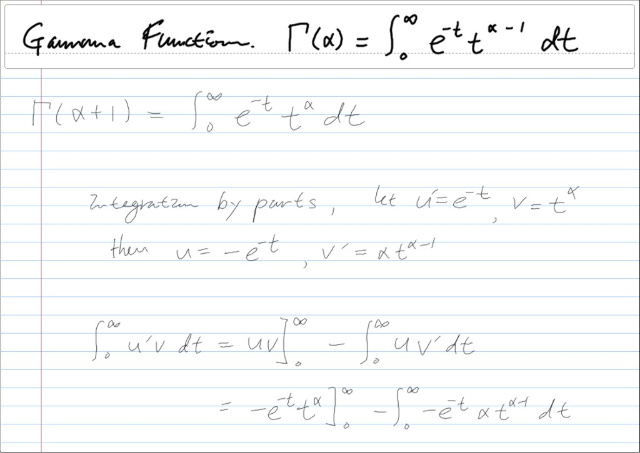 Gamma Function. Γ(α) = ∫₀^∞ e^{-t} t^{α-1} dt
Γ(α+1) = ∫₀^∞ e^{-t} t^α dt
Integration by parts, let u' = e^{-t}, v = t^α
then u = -e^{-t}, v' = αt^{α-1}
∫₀^∞ u'v dt = uv]₀^∞ - ∫₀^∞ uv' dt
= -e^{-t} t^α]₀^∞ - ∫₀^∞ -e^{-t} αt^{α-1} dt